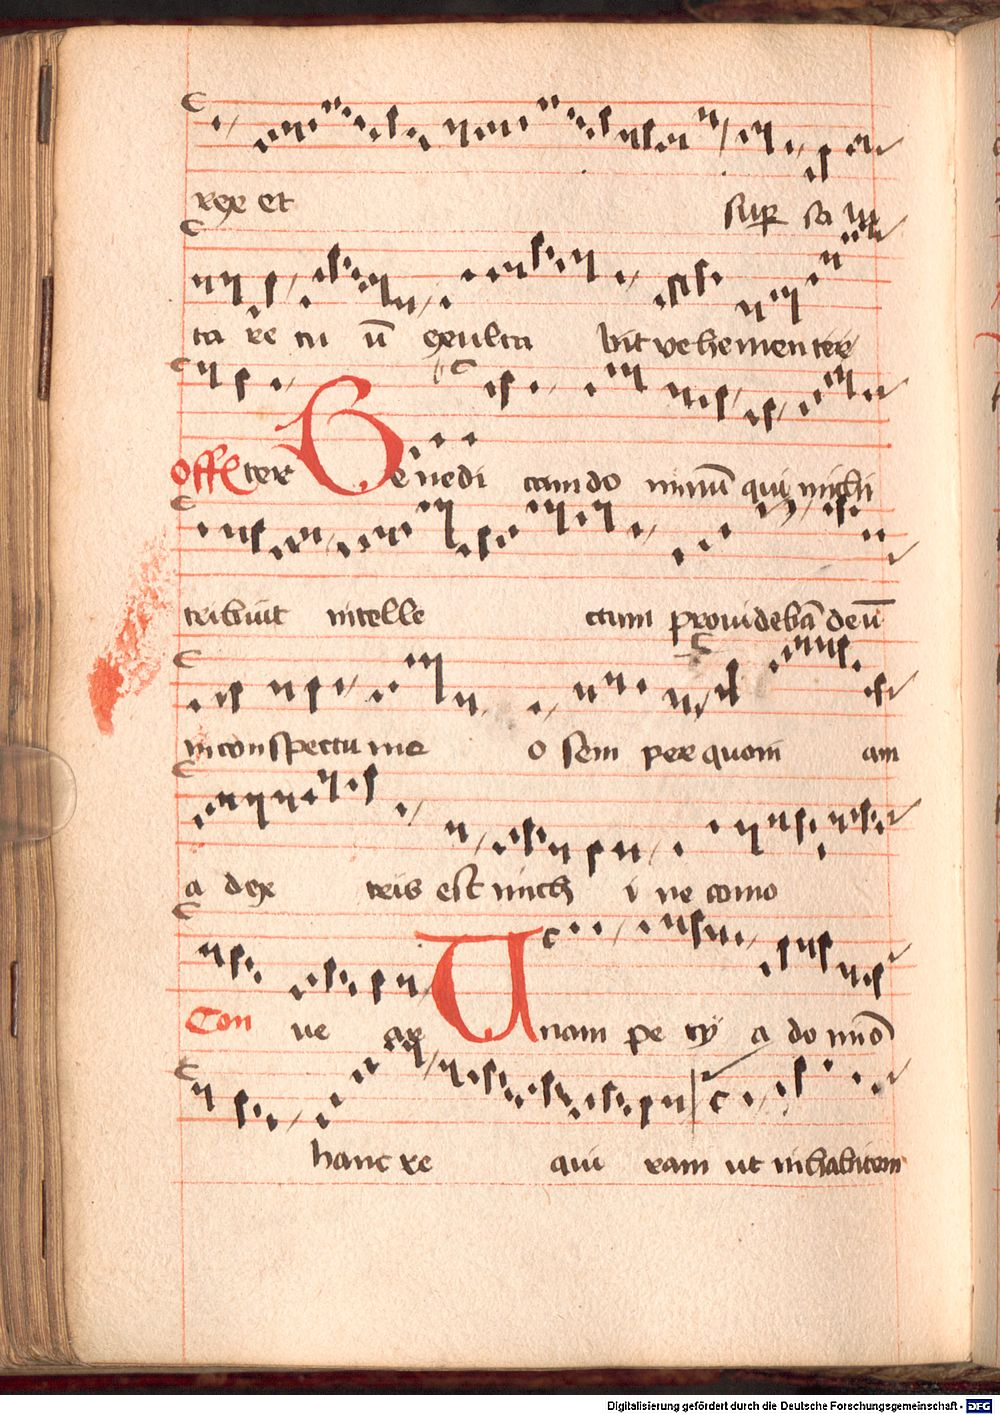 rex et sup sa lu
ta re tu ū exulta bit vehementer
Offer ter Benedi cam do minū qui michi
tribuit intelle ctum providebā deū
in conspectu meo sem per quoni am
a dex tris est mich i ne como
Con ue ar Unam pe ty a do mīo
hanc re qui ram ut inhabitem
Digitalisierung gefördert durch die Deutsche Forschungsgemeinschaft - DFG